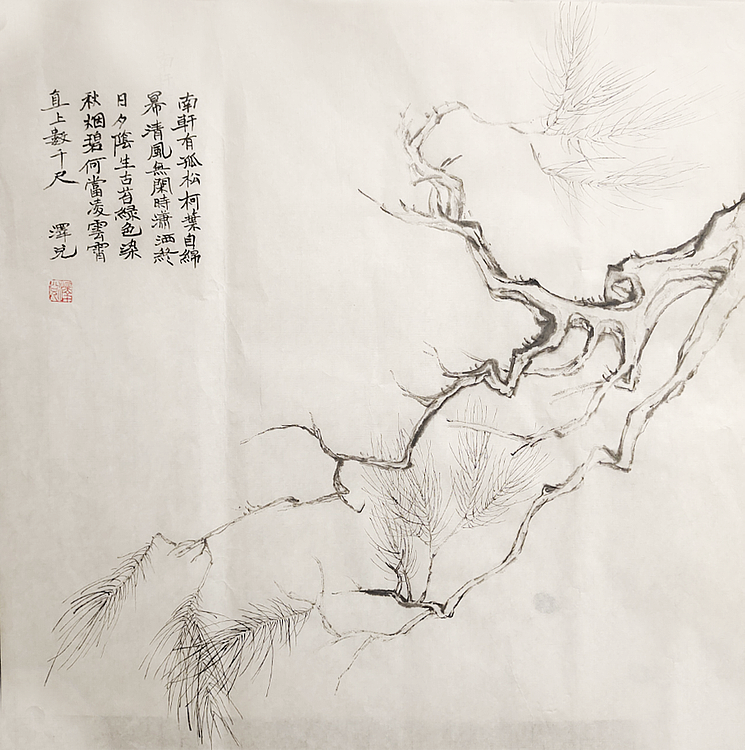 南軒有孤松柯葉自綿
幂清風無閑時瀟洒終
日夕陰生古苔綠色染
秋烟碧何當凌雲霄
直上數千尺 澤兑